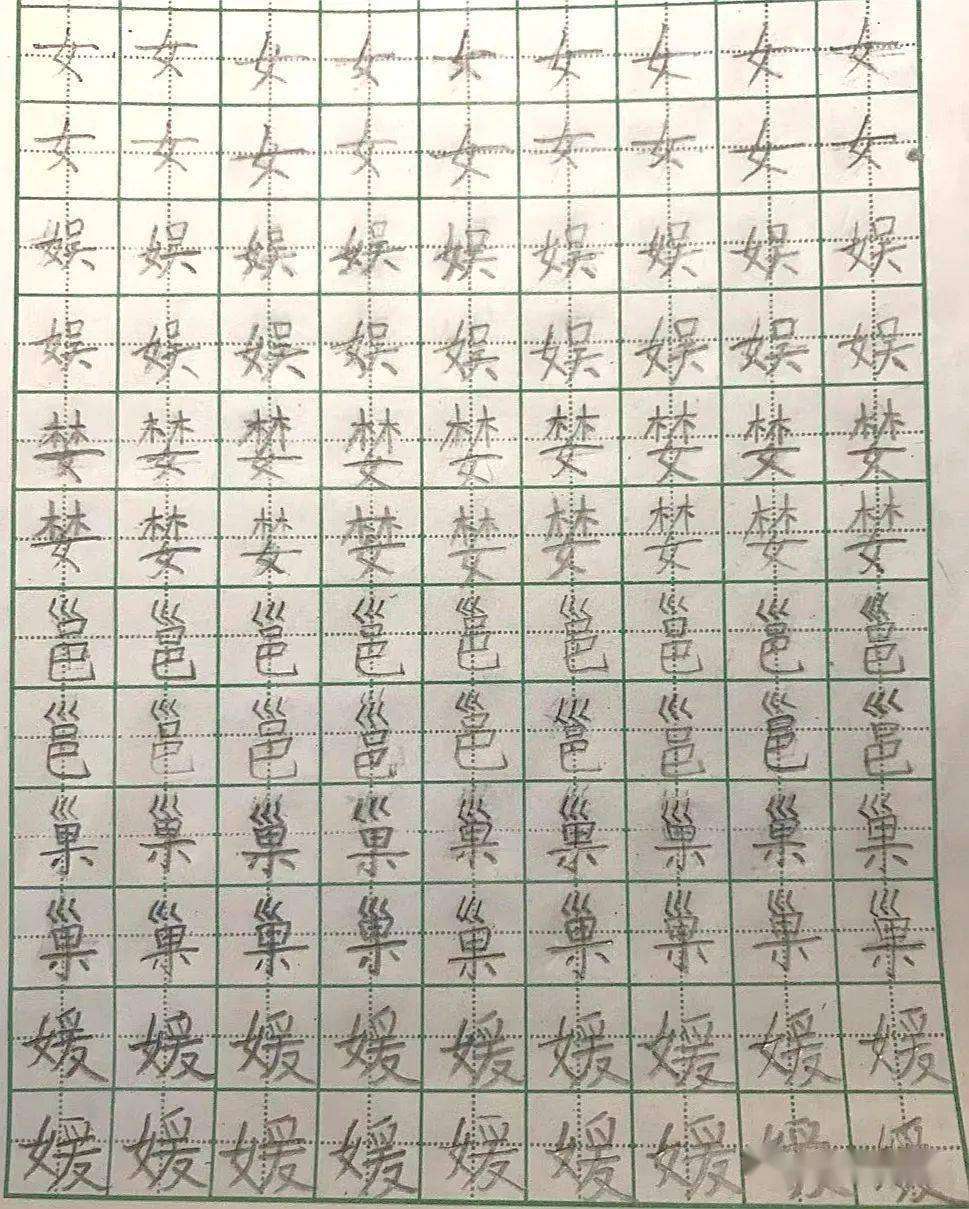 女女女女女女女女女
女女女女女女女女女
娱娱娱娱娱娱娱娱娱
娱娱娱娱娱娱娱娱娱
婪婪婪婪婪婪婪婪婪
婪婪婪婪婪婪婪婪婪
邕邕邕邕邕邕邕邕邕
邕邕邕邕邕邕邕邕邕
巢巢巢巢巢巢巢巢巢
巢巢巢巢巢巢巢巢巢
媛媛媛媛媛媛媛媛媛
媛媛媛媛媛媛媛媛媛